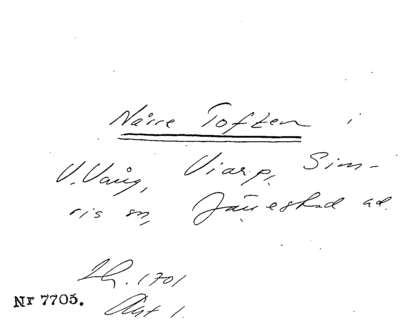 Nårre Toften i
V. Vång, Viarp, Sim-
ris sn, Järrestad ad.
Lh. 1701
Akt 1.
Nr 7705.